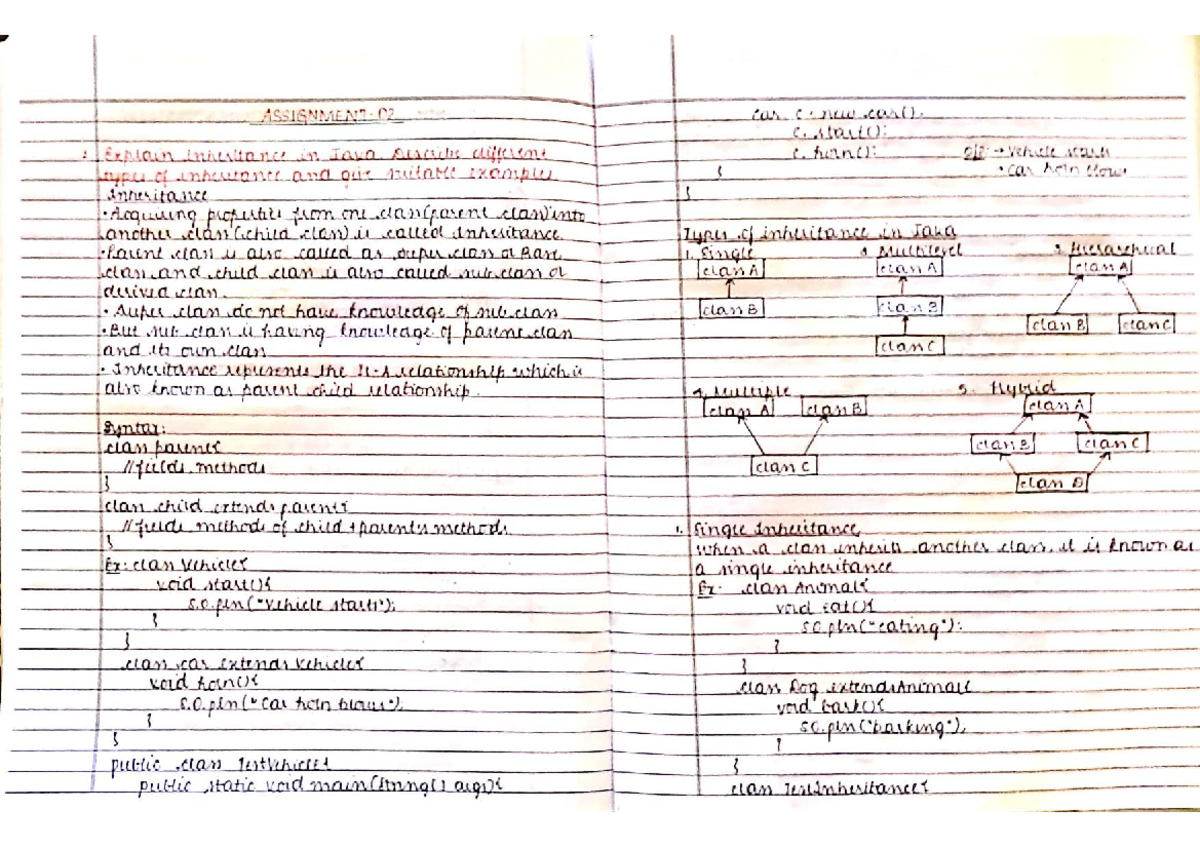 ASSIGNMENT-02
Explain inheritance in Java. Describe different
types of inheritance and give suitable examples
Inheritance
• Acquiring properties from one class(parent class) into
another class(child class) is called Inheritance.
• Parent class is also called as super class or Base
class and child class is also called sub class or
derived class.
• Super class do not have knowledge of sub class
• But sub class is having knowledge of parent class
and its own class
• Inheritance represents the IS-A relationship which is
also known as parent child relationship.
Syntax:
class parent{
//fields, methods
}
class child extends parent{
//fields methods of child + parent's methods
}
Ex: class Vehicle{
void start(){
S.O.pln("Vehicle starts");
}
}
class car extends Vehicle{
void horn(){
S.O.pln("Car horn blows");
}
}
public class TestVehicle{
public static void main(String[] args){
car c = new car();
c.start();
c.horn();
O/P: → Vehicle starts
• Car horn blows
}
}
Types of inheritance in Java
1. Single
class A
class B
2. Multilevel
class A
class B
class C
3. Hierarchical
class A
class B
class C
4. Multiple
class A
class B
class C
5. Hybrid
class A
class B
class C
class D
1. Single Inheritance
When a class inherits another class, it is known as
a single inheritance
Ex: class Animal{
void eat(){
S.O.pln("eating");
}
}
class Dog extends Animal{
void bark(){
S.O.pln("barking");
}
}
class TestInheritance{